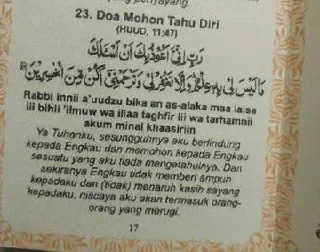 23. Doa Mohon Tahu Diri
(HUUD, 11:47)
رَبِّ اِنِّىْٓ اَعُوْذُ بِكَ اَنْ اَسْـَٔلَكَ
مَا لَيْسَ لِيْ بِهٖ عِلْمٌ وَاِلَّا تَغْفِرْ لِيْ وَتَرْحَمْنِيْٓ اَكُنْ مِّنَ الْخٰسِرِيْنَ
Rabbi innii a'uudzu bika an as-alaka maa laisa
lii bihii 'ilmuw wa illaa taghfir lii wa tarhamnii
akum minal khaasiriin
Ya Tuhanku, sesungguhnya aku berlindung
kepada Engkau dan memohon kepada Engkau
sesuatu yang aku tiada mengetahuinya. Dan
sekiranya Engkau tidak memberi ampun
kepadaku dan (tidak) menaruh kasih sayang
kepadaku, niscaya aku akan termasuk orang-
orang yang merugi.
17